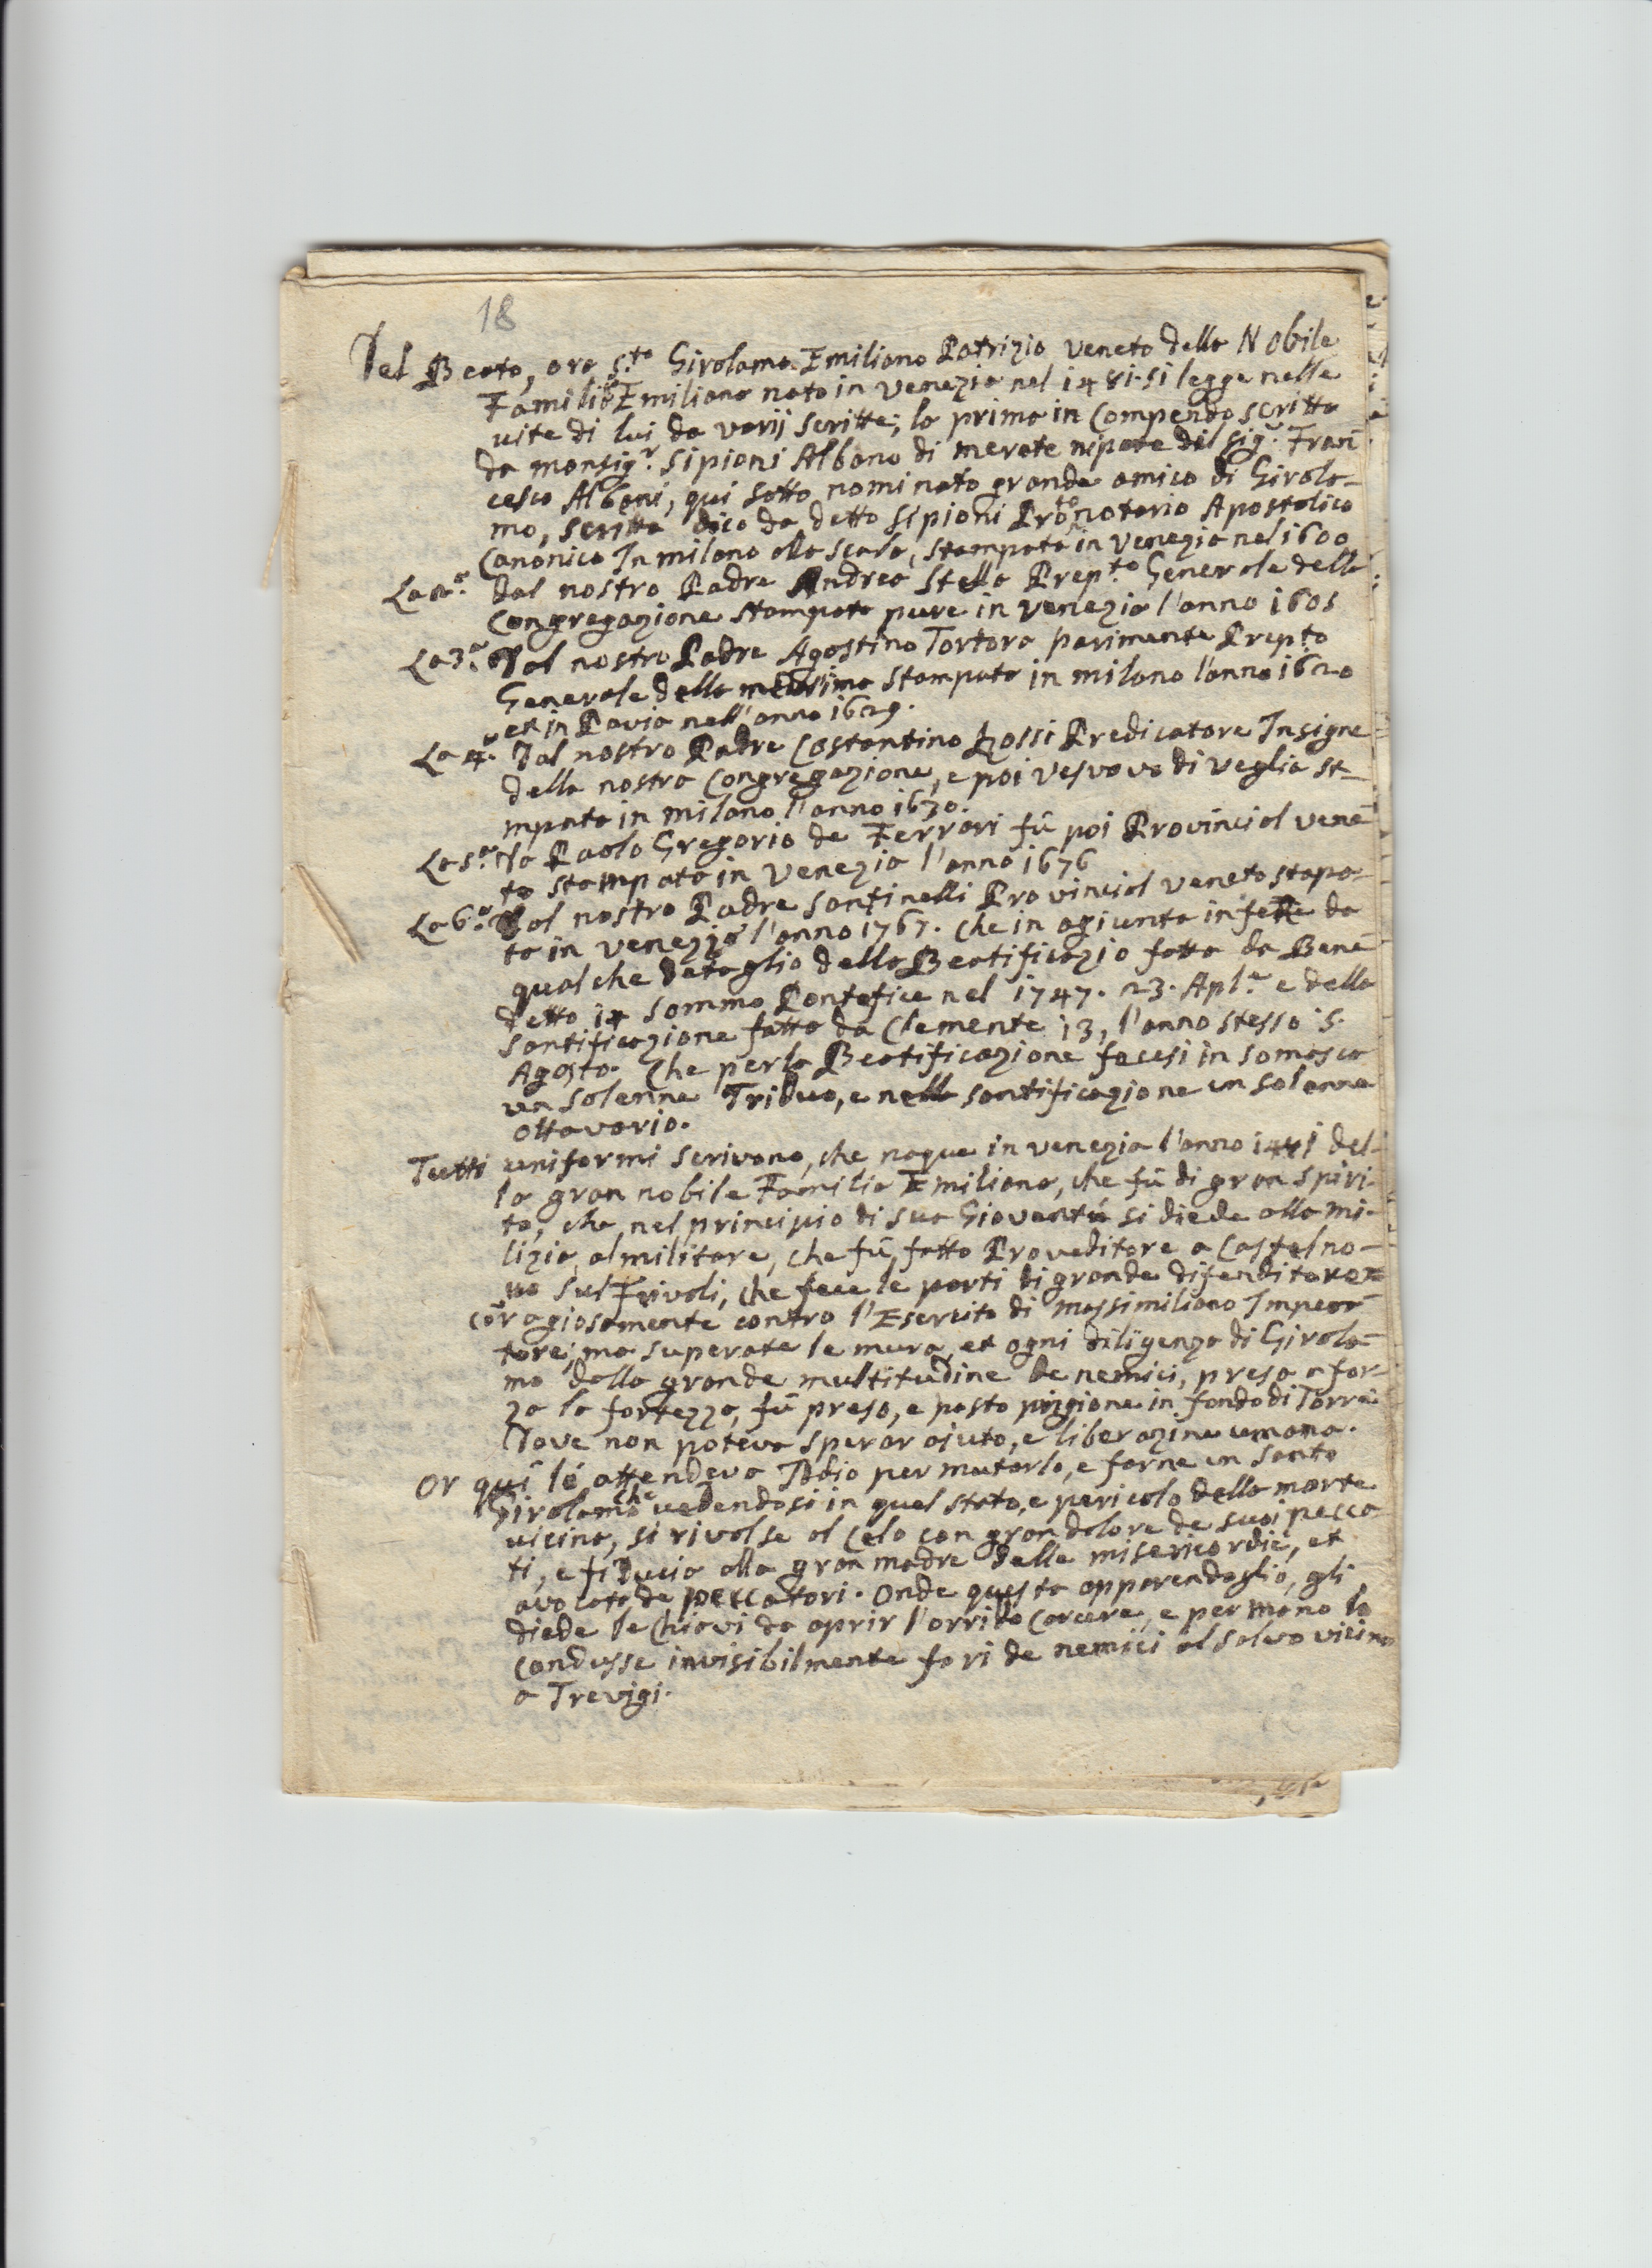 18
Del Beato, ora S.to Girolamo Emiliano Patrizio Veneto della Nobile
Familia Emiliana nato in Venezia nel 1481. si legge nelle
vite di lui da varij scritte; la prima in Compendo scritta
da monsig.r Sipioni Albano di merate nipote del sig.r Fran-
cesco Albani, qui sotto nominato grande amico di Girola-
mo, scritta dico da detto Sipioni Protonotario Apostolico
Canonico In milano alla scala, stampata in Venezia nel 1600
La 2.a Dal nostro Padre Andrea Stella Prep.to Generale della
Congregazione stampata pure in Venezia l'anno 1605
La 3.a Dal nostro Padre Agostino Tortora parimente Prep.to
Generale della medesima stampata in milano l'anno 1620
et in Pavia nell'anno 1629.
La 4.a Dal nostro Padre Costantino Rossi Predicatore Insigne
della nostra Congregazione, e poi Vesvovo di Veglia st-
mpata in milano l'anno 1630.
La 5.a Da Paolo Gregorio de Ferrari fù poi Provincial vene-
to stampata in Venezia l'anno 1676
La 6.a Dal nostro Padre Santinelli Provincial Veneto stapa-
ta in Venezia l'anno 1767. che in agiunta in fette da
qual che detaglio della Beatificazio fatta da Bene-
detto 14 sommo Pontefice nel 1747. 23. Apl.e e della
Santificazione fatta da Clemente 13, l'anno stesso 5.
Agosto. Che per la Beatificazione fecesi in Somasca
un solenne Triduo, e nella santificazione un solenne
ottavario.
Tutti uniformi scrivono, che naque in Venezia l'anno 1481 del-
la gran nobile Familia Emiliana, che fù di gran spiri-
to, che nel principio di sua Gioventú si diede alla mi-
lizia, al militare, che fù fatto Proveditore a Castelno-
vo sul Frivoli, che fece le parti di grande difenditore
coragiosamente contro l'Esercito di Massimiliano Impera-
tore; ma superate le mura, et ogni diligenza di Girola-
mo dalla grande multitudine de nemici, presa a for-
za la fortezza, fù preso, e posto prigione in fondo di Torre
Dove non poteva sperar ajuto, e liberazine umana.
Or qui lé attendeva Iddio per mutarlo, e farne un Santo
Girolamo che vedendosi in quel stato, e pericolo della morte
vicina, si rivolse al Celo con gran dolore de suoi pecca-
ti, e fiducia alla gran madre delle misericordie, et
avocata de peccatori. Onde questa apparendoglio, gli
diede le Chiavi da aprir l'orrida Carcere, e per mano lo
condusse invisibilmente fori de nemici al salvo vicino
a Trevigi.